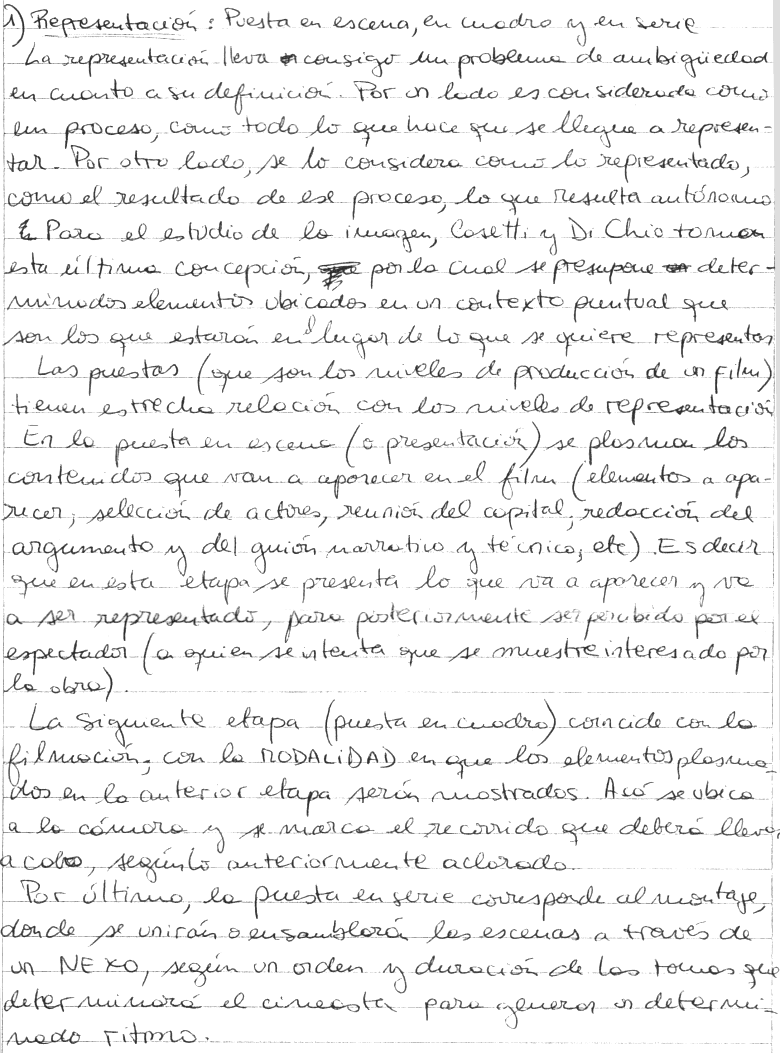 1) Representación: Puesta en escena, en cuadro y en serie
La representación lleva consigo un problema de ambigüedad
en cuanto a su definición. Por un lado es considerada como
un proceso, como todo lo que hace que se llegue a represen-
tar. Por otro lado, se lo considera como lo representado,
como el resultado de ese proceso, lo que resulta autónomo
Para el estudio de la imagen, Casetti y Di Chio toman
esta última concepción, por la cual se presupone deter-
minados elementos ubicados en un contexto puntual que
son los que estarán en lugar de lo que se quiere representar
Las puestas (que son los niveles de producción de un film)
tienen estrecha relación con los niveles de representación
En la puesta en escena (o presentación) se plasman los
contenidos que van a aparecer en el film (elementos a apa-
recer, selección de actores, reunión del capital, redacción del
argumento y del guión narrativo y técnico, etc). Es decir
que en esta etapa se presenta lo que va a aparecer y va
a ser representado, para posteriormente ser percibido por el
espectador (a quien se intenta que se muestre interesado por
la obra).
La siguiente etapa (puesta en cuadro) coincide con la
filmación, con la MODALIDAD en que los elementos plasma-
dos en la anterior etapa serán mostrados. Acá se ubica
a la cámara y se marca el recorrido que deberá llevar
a cabo, según lo anteriormente aclarado.
Por último, la puesta en serie corresponde al montaje,
donde se unirán o ensamblarán las escenas a través de
un NEXO, según un orden y duración de las tomas que
determinará el cineasta para generar un determi-
nado ritmo.